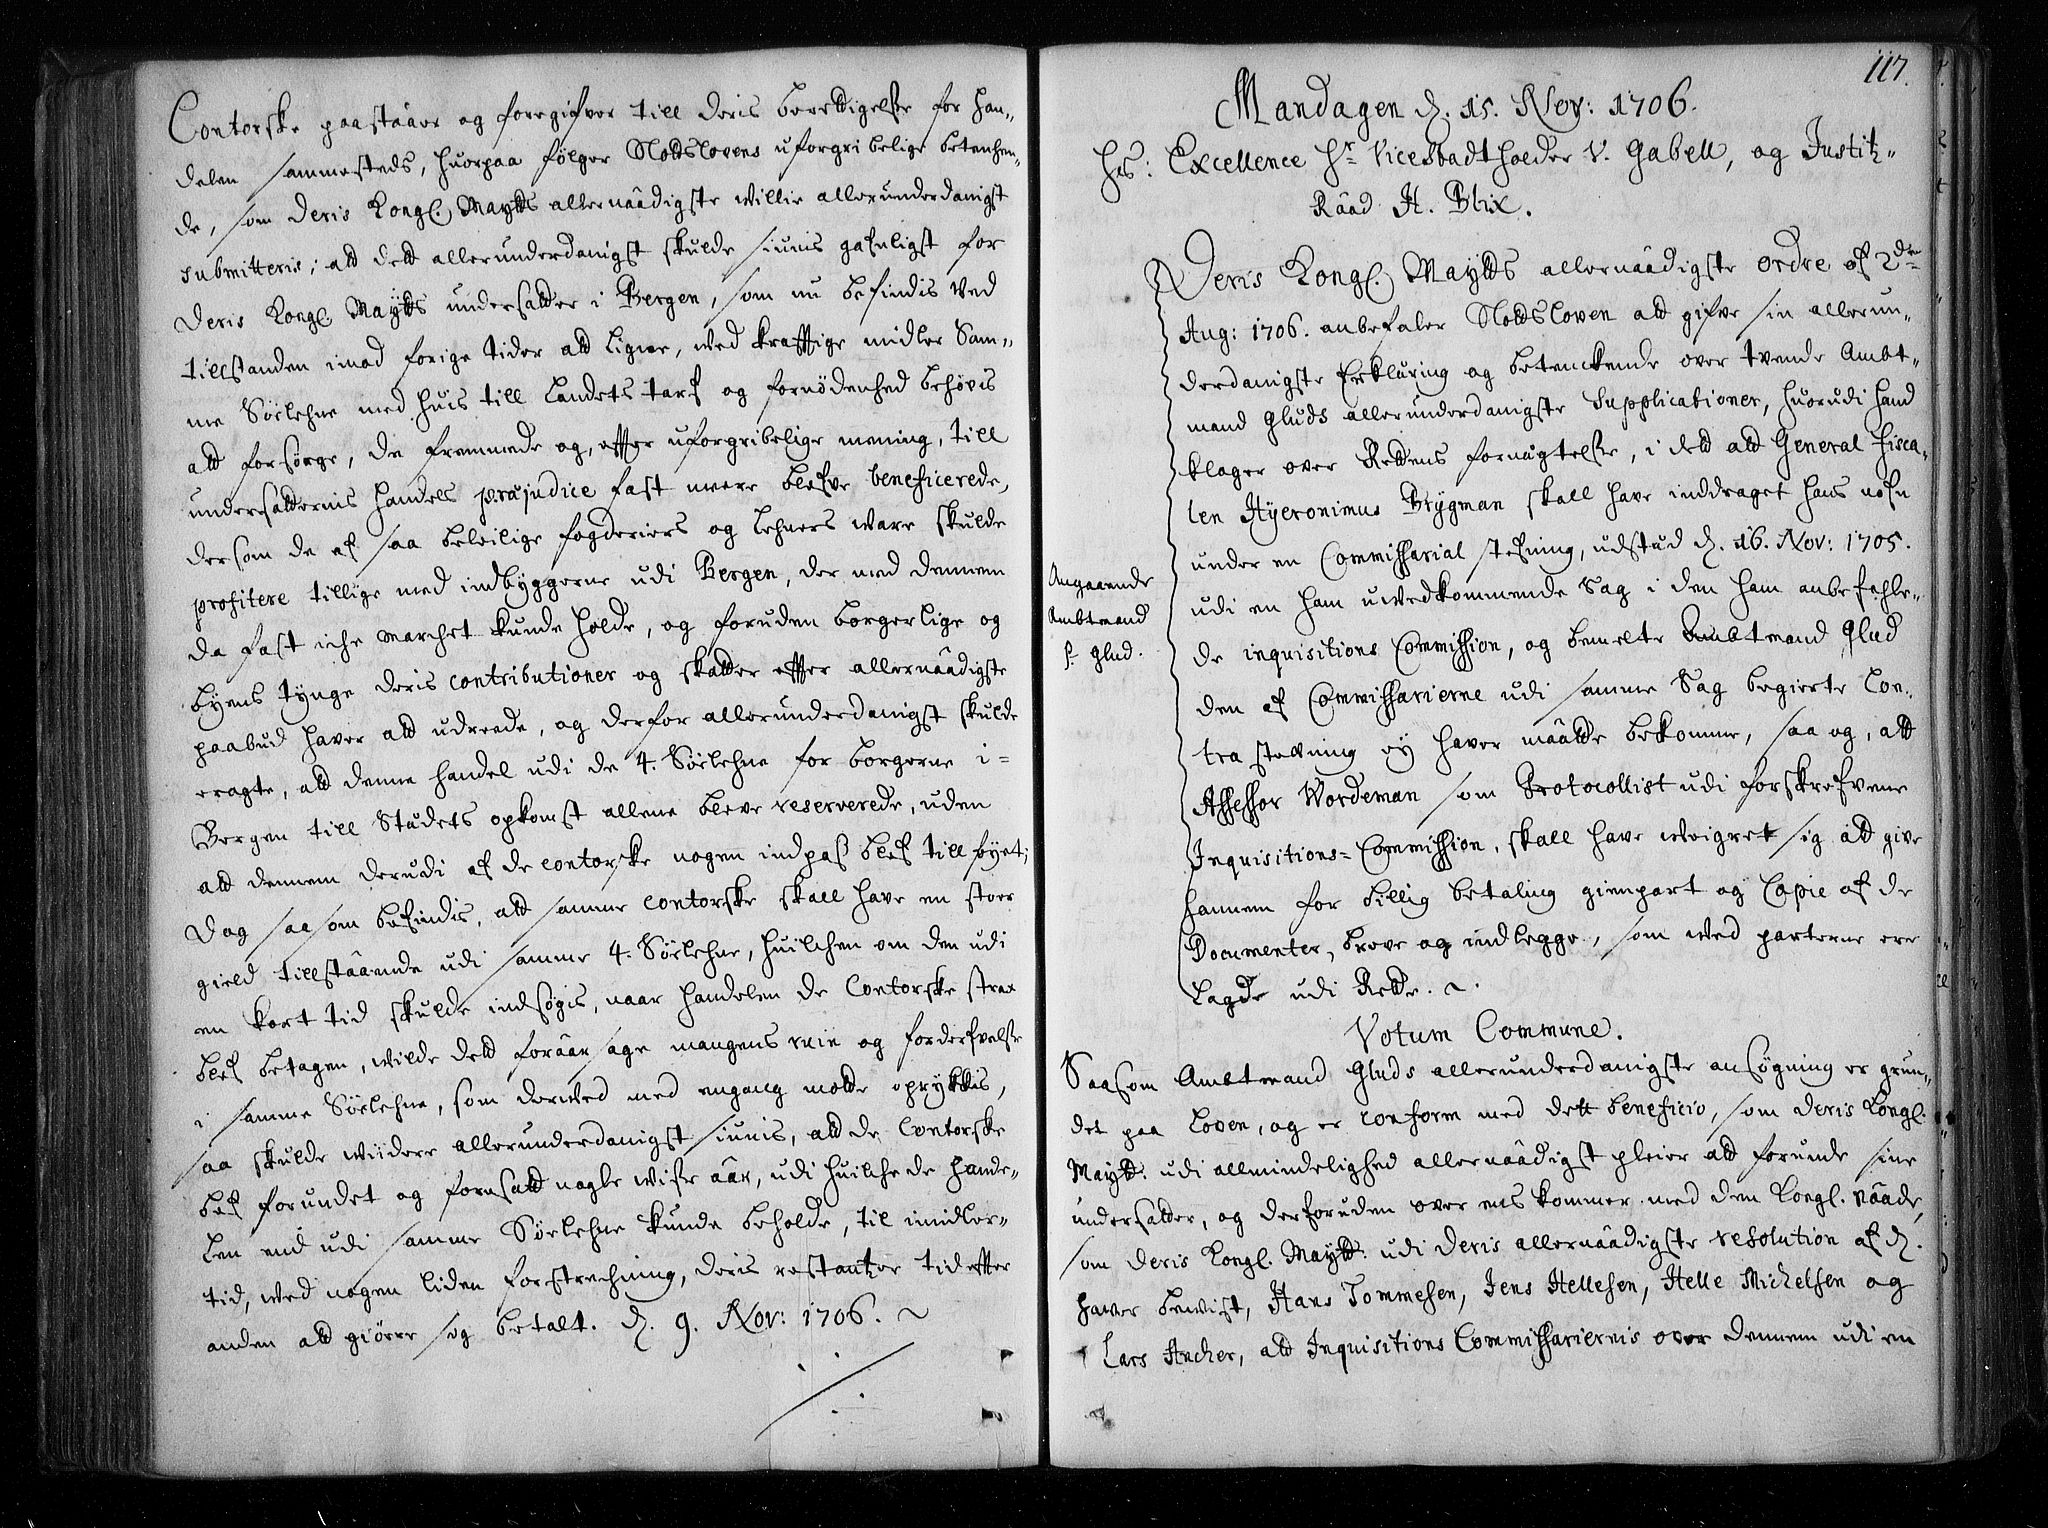 Contorske paastaaer og foregifver till deris berettigelse for han„
delen sammesteds, huorpaa følger Slodslovens uforgribelige betenchen„
de, som deris Kongl. Maytts allernaadigste willie allerunderdanigst
submitteris; att dett allerunderdanigst skulde siunis gafnligst for
Deris Kongl. Maytts undersatter i Bergen, som nu befindis ved
tillstanden imod forige tider att ligne, wed krafftige midler Sam„
me Nørlehne med huis till Landets tarf og fornødenhed behøvis
att forsørge, da fremmede og, effter uforgribelige mening, till
undersatternis handels præjudice fast meere blefve beneficerede,
dersom de af saa beleilige fogderiers og Lehners ware skulde
profitere tillige med indbyggerne udi Bergen, der med dennem
da fast iche marchet kunde holde, og foruden borgerlige og
byens tynge deris contributioner og skatter effter allernaadigste
paabud haver att udreede, og derfor allerunderdanigst skulde
eragte, att denne handel udi de 4. Nørlehne for borgerne i=
Bergen till Stadets opkomst allene bleve reserverede, uden
att dennem derudi af de contorske nogen indpas blef till føyet;
Dog saasom befindis, att samme contorske skall have en stoer
gield tillstaaende udi samme 4. Nørlehne, huilchen om den udi
en kort tid skulde indsøgis, naar handelen de Contorske strax
blef betagen, wilde dett foraarsage mangens ruin og forderfvelse
i samme Nørlehne, som derved med engang motte opryktis,
saa skulde wiidere allerunderdanigst siunis, att de Contorske
blef forundet og fornsatt nogle wisse aar, udi huilche de hande„
len end udi samme Nørlehne kunde beholde, til imidler„
tid, wed nogen liden forstrechning, deris restantzer tid effter
anden att giøre sig betalt. d. 9. Nov: 1706.

117.
Mandagen d. 15. Nov: 1706.
Hs: Excellence Hr Vicestadtholder V. Gabell, og Justitz„
Raad H. Blix.
Deris Kongl. Maytts allernaadigste ordre af 2den
Aug: 1706. anbefaler Slodsloven att gifve sin allerun„
derdanigste Erklæring og betenckende over tvende Ambt„
mand Gluds allerunderdanigste Supplicationer, huorudi hand
klager over Rettens fornægtelse, i dett att General Fisca„
len Hyeronimus Brygman skall have inddraget hans nafn
under en Commissarial stefning, udstæd d. 16. Nov: 1705.
udi en ham uvedkommende Sag i den ham anbefahle„
de inquisitions Commission, og bemelte Ambtmand Glud
den af Commissarierne udi samme Sag begierte Con„
tra stevning ey haver maatte bekomme, saa og, att
Assessor Wordeman som Protocollist udi forskrefvene
Inquisitions= Commission, skall have weigret sig att give
hannem for billig betaling gienpart og Copie af de
Documenter, breve og indlegge, som wed parterne ere
Lagde udi Rette.
Angaaende
Ambtmand
S. Glud.
Votum Commune.
Saasom Ambtmand Gluds allerunderdanigste ansøgning er grun„
det paa Loven, og er conform med dett beneficio, som deris Kongl.
Maytt. udi allmindelighed allernaadigst pleier att forunde sine
undersatter, og derforuden over ens kommer med den Kongl. naade,
som deris Kongl. Maytt. udi Deris allernaadigste resolution af d.
haver beviist, Hans Tommesen, Jens Hellesen, Helle Michelsen og
Lars Ancher, att Inquisitions Commissariernis over dennem udi en